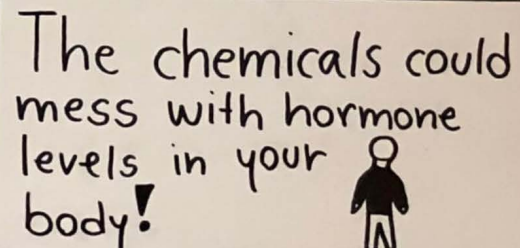 The chemicals could
mess with hormone
levels in your
body!